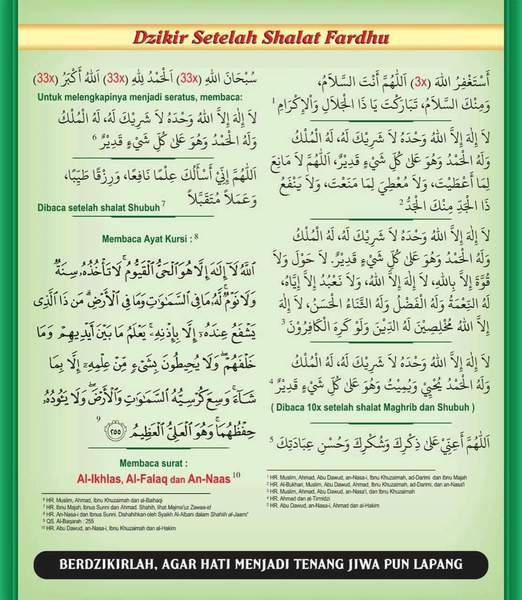 Dzikir Setelah Shalat Fardhu
أَسْتَغْفِرُ اللهَ (3x) اَللَّهُمَّ أَنْتَ السَّلاَمُ،
وَمِنْكَ السَّلاَمُ، تَبَارَكْتَ يَا ذَا الْجَلاَلِ وَاْلإِكْرَامِ 1
لاَ إِلَهَ إِلاَّ اللهُ وَحْدَهُ لاَ شَرِيْكَ لَهُ، لَهُ الْمُلْكُ
وَلَهُ الْحَمْدُ وَهُوَ عَلَىٰ كُلِّ شَيْءٍ قَدِيْرٌ، اَللَّهُمَّ لاَ مَانِعَ
لِمَا أَعْطَيْتَ، وَلاَ مُعْطِيَ لِمَا مَنَعْتَ، وَلاَ يَنْفَعُ
ذَا الْجَدِّ مِنْكَ الْجَدُّ 2
لاَ إِلَهَ إِلاَّ اللهُ وَحْدَهُ لاَ شَرِيْكَ لَهُ، لَهُ الْمُلْكُ
وَلَهُ الْحَمْدُ وَهُوَ عَلَىٰ كُلِّ شَيْءٍ قَدِيْرٌ. لاَ حَوْلَ وَلاَ
قُوَّةَ إِلاَّ بِاللهِ، لاَ إِلَهَ إِلاَّ اللهُ، وَلاَ نَعْبُدُ إِلاَّ إِيَّاهُ،
لَهُ النِّعْمَةُ وَلَهُ الْفَضْلُ وَلَهُ الثَّنَاءُ الْحَسَنُ، لاَ إِلَهَ
إِلاَّ اللهُ مُخْلِصِيْنَ لَهُ الدِّيْنَ وَلَوْ كَرِهَ الْكَافِرُوْنَ 3
لاَ إِلَهَ إِلاَّ اللهُ وَحْدَهُ لاَ شَرِيْكَ لَهُ، لَهُ الْمُلْكُ
وَلَهُ الْحَمْدُ يُحْيِيْ وَيُمِيْتُ وَهُوَ عَلَىٰ كُلِّ شَيْءٍ قَدِيْرٌ 4
( Dibaca 10x setelah shalat Maghrib dan Shubuh )
اَللَّهُمَّ أَعِنِّيْ عَلَىٰ ذِكْرِكَ وَشُكْرِكَ وَحُسْنِ عِبَادَتِكَ 5
1 HR. Muslim, Ahmad, Abu Dawud, an-Nasa-i, Ibnu Khuzaimah, ad-Darimi dan Ibnu Majah
2 HR. Al-Bukhari, Muslim, Abu Dawud, Ahmad, Ibnu Khuzaimah, ad-Darimi, dan an-Nasa'i
3 HR. Muslim, Ahmad, Abu Dawud, an-Nasa'i, dan Ibnu Khuzaimah
4 HR. Ahmad dan at-Tirmidzi
5 HR. Abu Dawud, an-Nasa-i, Ahmad dan al-Hakim
سُبْحَانَ اللهِ (33x) اَلْحَمْدُ لِلَّهِ (33x) اَللهُ أَكْبَرُ (33x)
Untuk melengkapinya menjadi seratus, membaca:
لاَ إِلَهَ إِلاَّ اللهُ وَحْدَهُ لاَ شَرِيْكَ لَهُ، لَهُ الْمُلْكُ
وَلَهُ الْحَمْدُ وَهُوَ عَلَىٰ كُلِّ شَيْءٍ قَدِيْرٌ 6
اَللَّهُمَّ إِنِّيْ أَسْأَلُكَ عِلْمًا نَافِعًا، وَرِزْقًا طَيِّبًا،
وَعَمَلاً مُتَقَبَّلاً
Dibaca setelah shalat Shubuh 7
Membaca Ayat Kursi : 8
اللَّهُ لَا إِلَٰهَ إِلَّا هُوَ الْحَيُّ الْقَيُّومُ ۚ لَا تَأْخُذُهُ سِنَةٌ
وَلَا نَوْمٌ ۚ لَّهُ مَا فِي السَّمَاوَاتِ وَمَا فِي الْأَرْضِ ۗ مَن ذَا الَّذِي
يَشْفَعُ عِندَهُ إِلَّا بِإِذْنِهِ ۚ يَعْلَمُ مَا بَيْنَ أَيْدِيهِمْ وَمَا
خَلْفَهُمْ ۖ وَلَا يُحِيطُونَ بِشَيْءٍ مِّنْ عِلْمِهِ إِلَّا بِمَا
شَاءَ ۚ وَسِعَ كُرْسِيُّهُ السَّمَاوَاتِ وَالْأَرْضَ ۖ وَلَا يَئُودُهُ
حِفْظُهُمَا ۚ وَهُوَ الْعَلِيُّ الْعَظِيمُ ٢٥٥ 9
Membaca surat :
Al-Ikhlas, Al-Falaq dan An-Naas 10
6 HR. Muslim, Ahmad, Ibnu Khuzaimah dan al-Baihaqi
7 HR. Ibnu Majah, Ibnus Sunni dan Ahmad. Shahih, lihat Majma'uz Zawaa-id
8 HR. An-Nasa-i dan Ibnus Sunni. Dishahihkan oleh Syaikh Al-Albani dalam Shahiih al-Jaami'
9 QS. Al-Baqarah : 255
10 HR. Abu Dawud, an-Nasa-i, Ibnu Khuzaimah dan al-Hakim
BERDZIKIRLAH, AGAR HATI MENJADI TENANG JIWA PUN LAPANG